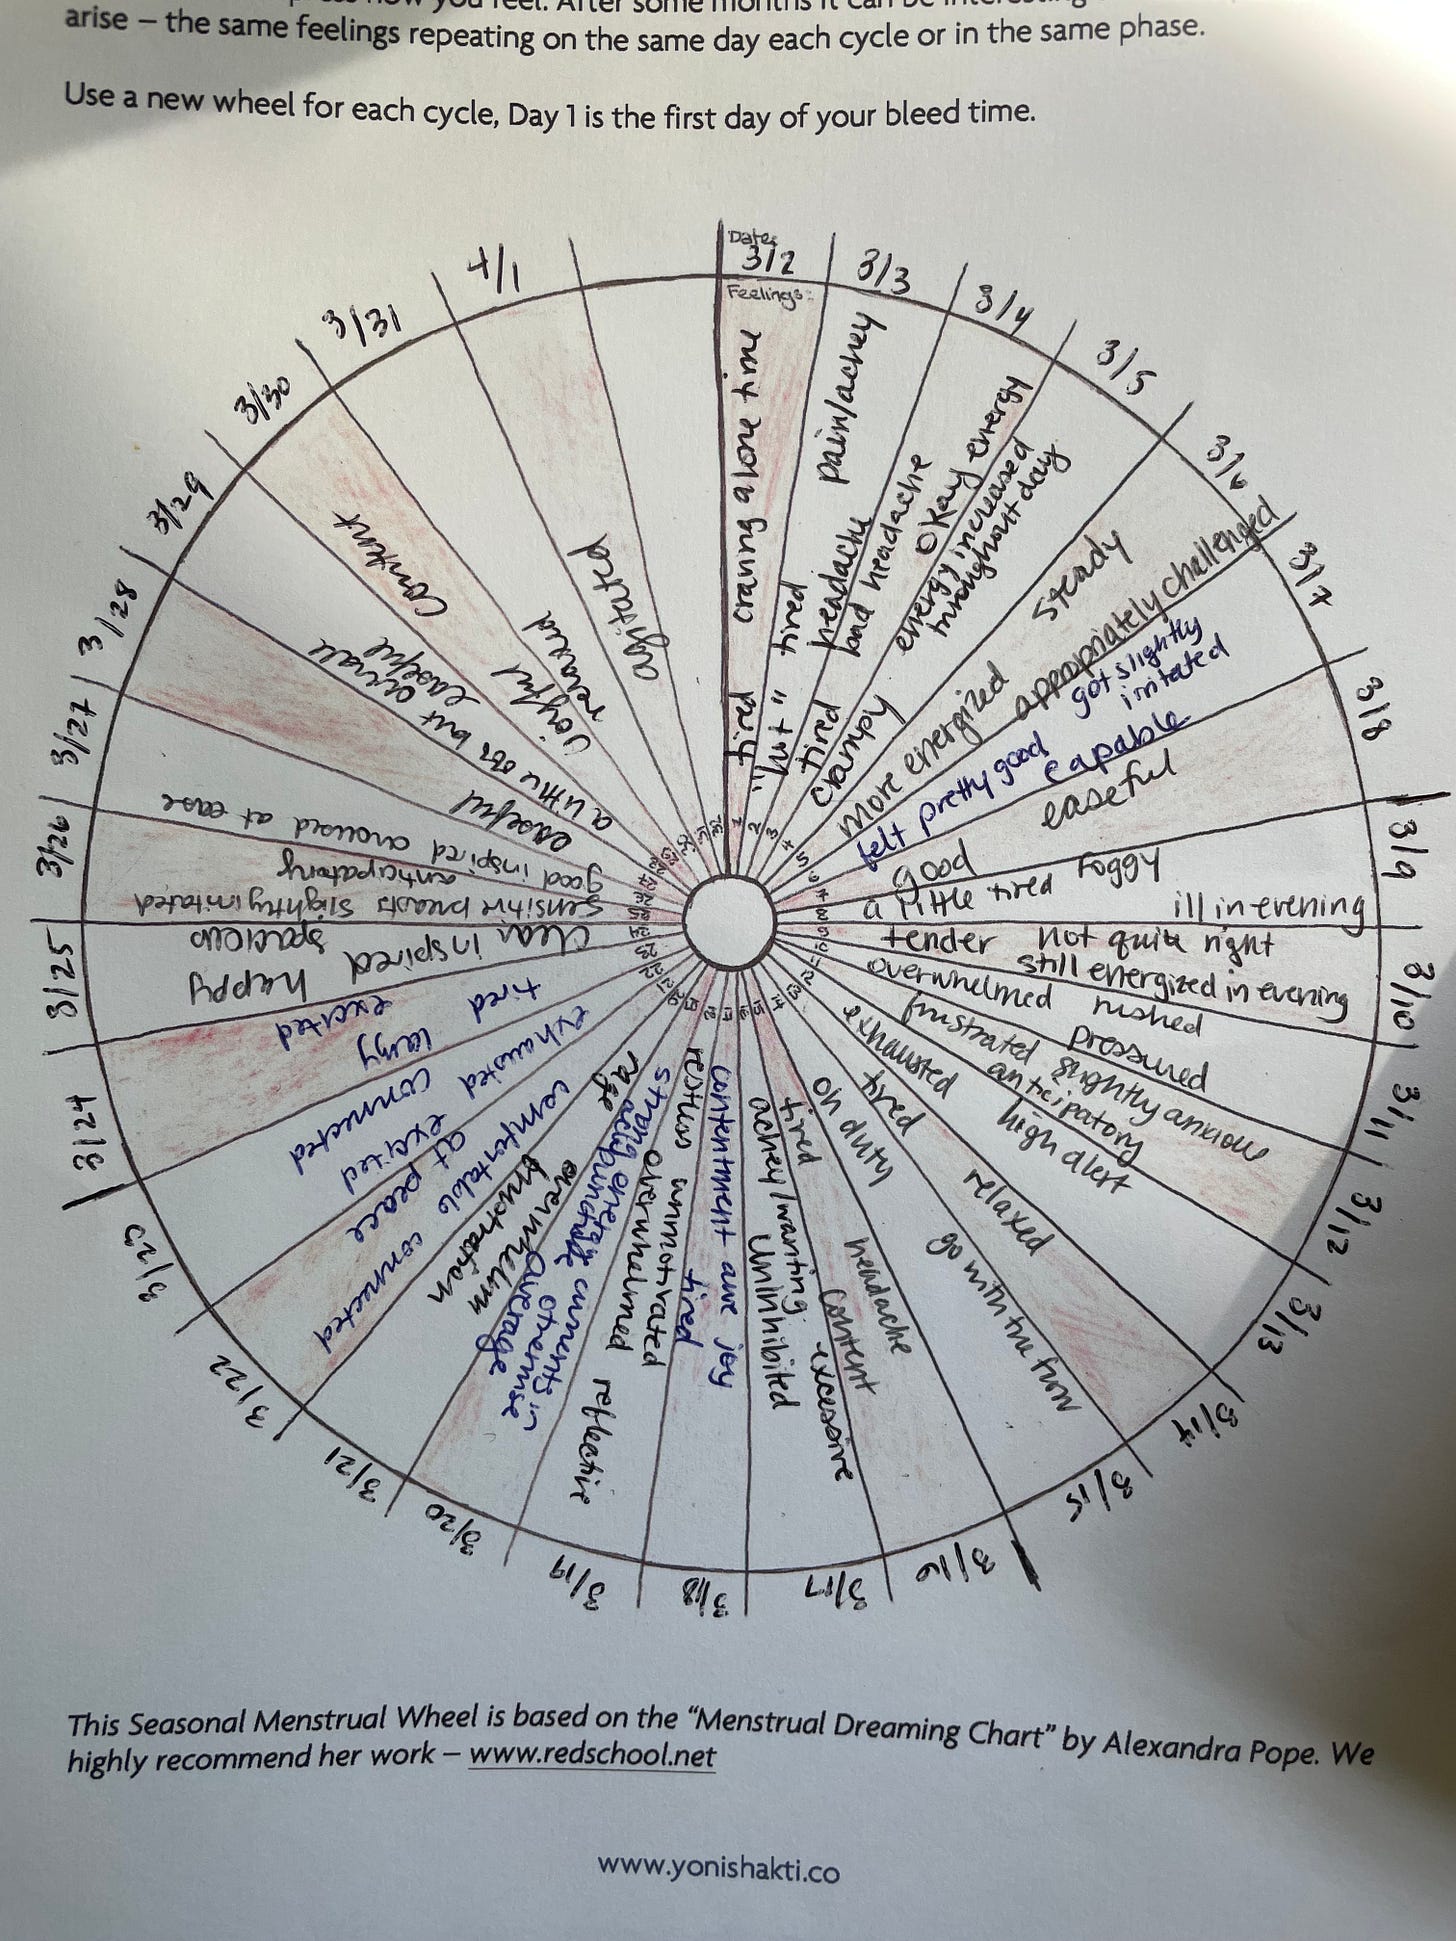 arise – the same feelings repeating on the same day each cycle or in the same phase.
Use a new wheel for each cycle, Day 1 is the first day of your bleed time.
Date:
3/2
Feelings:
craving alone time
3/3
tired
pain/achey
"hit"
headache
3/4
tired
bad headache
okay energy
3/5
crampy
energy increased
throughout day
3/6
more energized
steady
appropriately challenged
3/7
felt pretty good
got slightly
irritated
capable
3/8
good
easeful
3/9
a little tired
foggy
ill in evening
3/10
tender
not quite right
still energized in evening
3/11
overwhelmed
rushed
pressured
3/12
frustrated
slightly anxious
anticipatory
3/13
exhausted
high alert
3/14
tired
relaxed
3/15
on duty
go with the flow
3/16
tired
headache
content
3/17
achey/wanting
excessive
uninhibited
3/18
contentment awe joy
tired
restless
unmotivated
3/19
overwhelmed
reflective
3/20
strong energy currents in
otherwise
average
3/21
rage
overwhelm
frustration
3/22
comfortable connected
at peace
3/23
exhausted
excited
connected
3/24
tired
lazy
excited
3/25
clear inspired
happy
spacious
3/26
sensitive breasts slightly irritated
anticipatory
3/27
good inspired aroused at ease
3/28
easeful
3/29
a little off but overall
easeful
3/30
content
3/31
joyful
relaxed
4/1
agitated
This Seasonal Menstrual Wheel is based on the “Menstrual Dreaming Chart” by Alexandra Pope. We
highly recommend her work – www.redschool.net
www.yonishakti.co